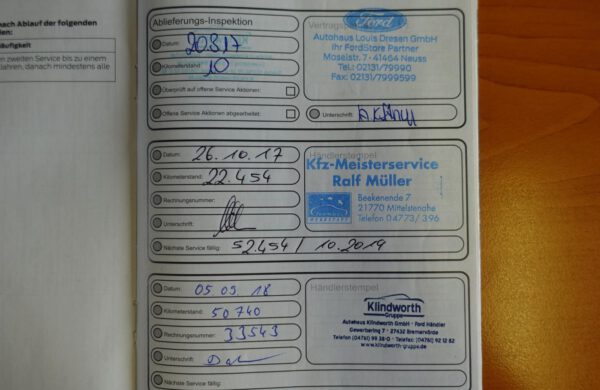 nach Ablauf der folgenden
en:
äufigkeit
n zweiten Service bis zu einem
Jahren, danach mindestens alle
Ablieferungs-Inspektion
Datum: 20.3.17
Kilometerstand: 10
Überprüft auf offene Service Aktionen:
Offene Service Aktionen abgearbeitet:
Vertrags
Ford
Autohaus Louis Dresen GmbH
Ihr FordStore Partner
Moselstr. 7 · 41464 Neuss
Tel.: 02131/79990
Fax: 02131/7999599
Unterschrift:
Datum: 26.10.17
Kilometerstand: 22.454
Rechnungsnummer:
Unterschrift:
Nächste Service fällig: 52.454 / 10.2019
Händlerstempel
Kfz-Meisterservice
Ralf Müller
Beekenende 7
21770 Mittelstenahe
Telefon 04773/396
Datum: 05 09 18
Kilometerstand: 50740
Rechnungsnummer: 33543
Unterschrift:
Nächste Service fällig:
Händlerstempel
Klindworth
Gruppe
Autohaus Klindworth GmbH · Ford Händler
Gewerbering 7 · 27432 Bremervörde
Telefon (04761) 99 38-0 · Telefax (04761) 92 12 82
www.klindworth-gruppe.de